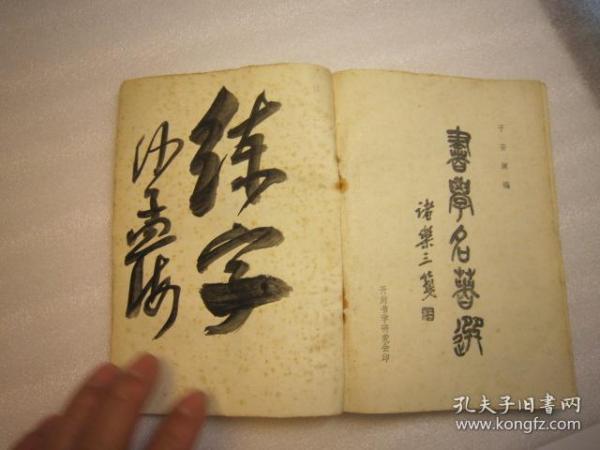 练字
沙孟海
于安澜编
書學名著選
诸樂三篆
开封书学研究会印
孔夫子旧書网
www.kongfz.com